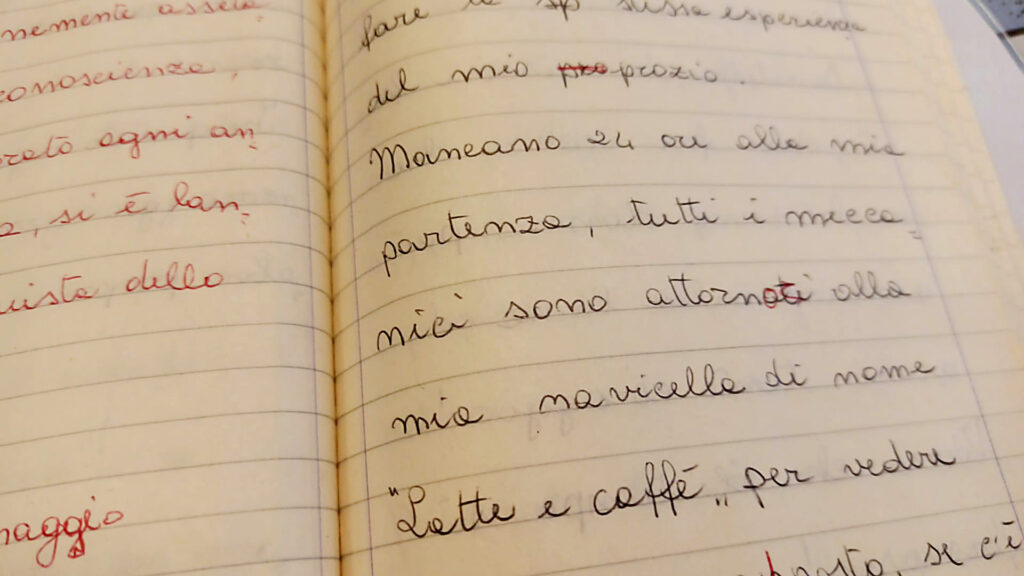 nemente assete
conoscienza,
rato ogni an=
a, si è lan=
uista dello
maggio
fare la stessa esperienza
del mio prozio.
Mancano 24 ore alla mia
partenza, tutti i mecca=
nici sono attornati alla
mia navicella di nome
"Latte e caffè„ per vedere
posto, se c'è